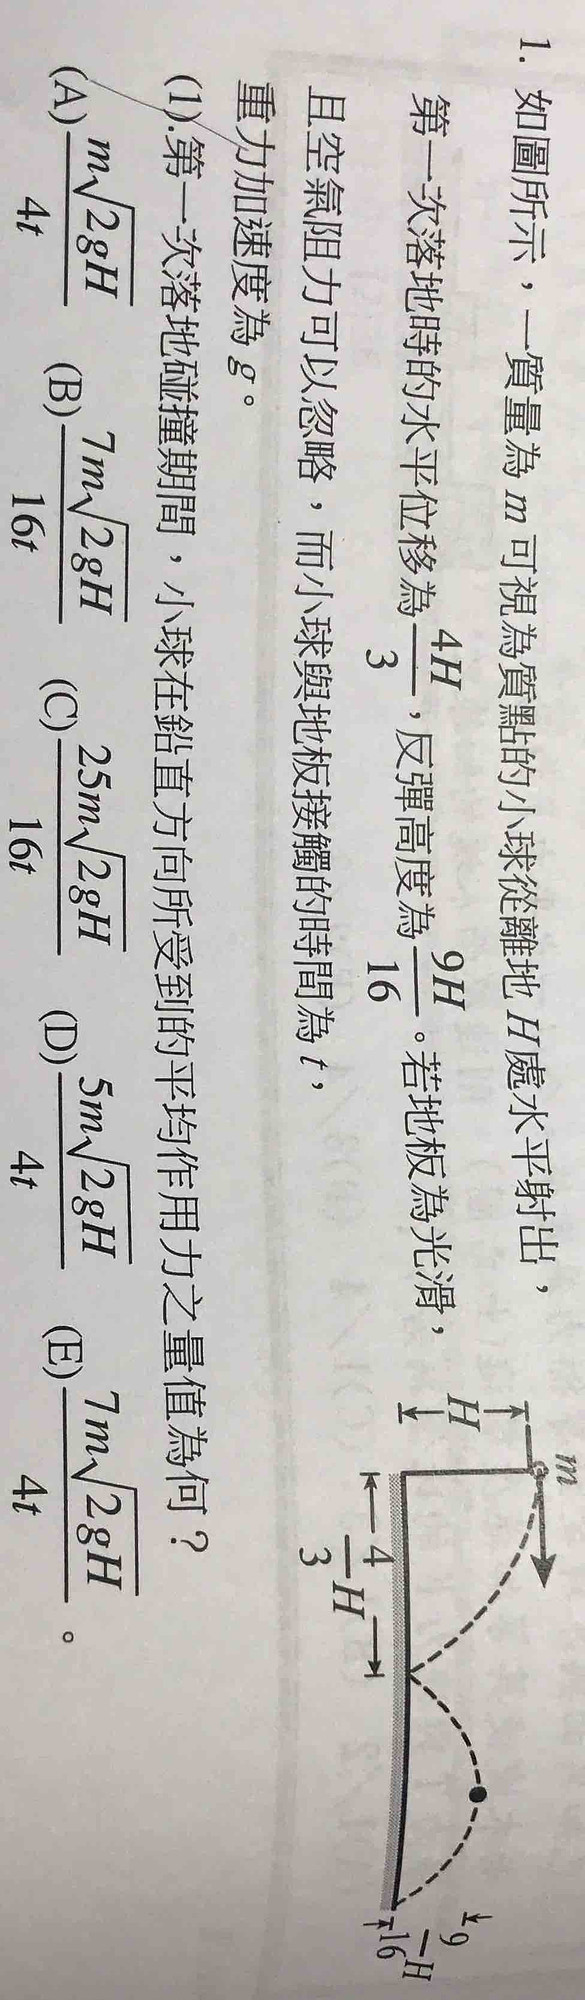 1. 如圖所示，一質量為 m 可視為質點的小球從離地 H 處水平射出，
第一次落地時的水平位移為 4H/3，反彈高度為 9H/16。若地板為光滑，
且空氣阻力可以忽略，而小球與地板接觸的時間為 t，
重力加速度為 g。
(1).第一次落地碰撞期間，小球在鉛直方向所受到的平均作用力之量值為何？
(A) m√2gH/4t (B) 7m√2gH/16t (C) 25m√2gH/16t (D) 5m√2gH/4t (E) 7m√2gH/4t 。
m
H
4/3 H
9/16 H